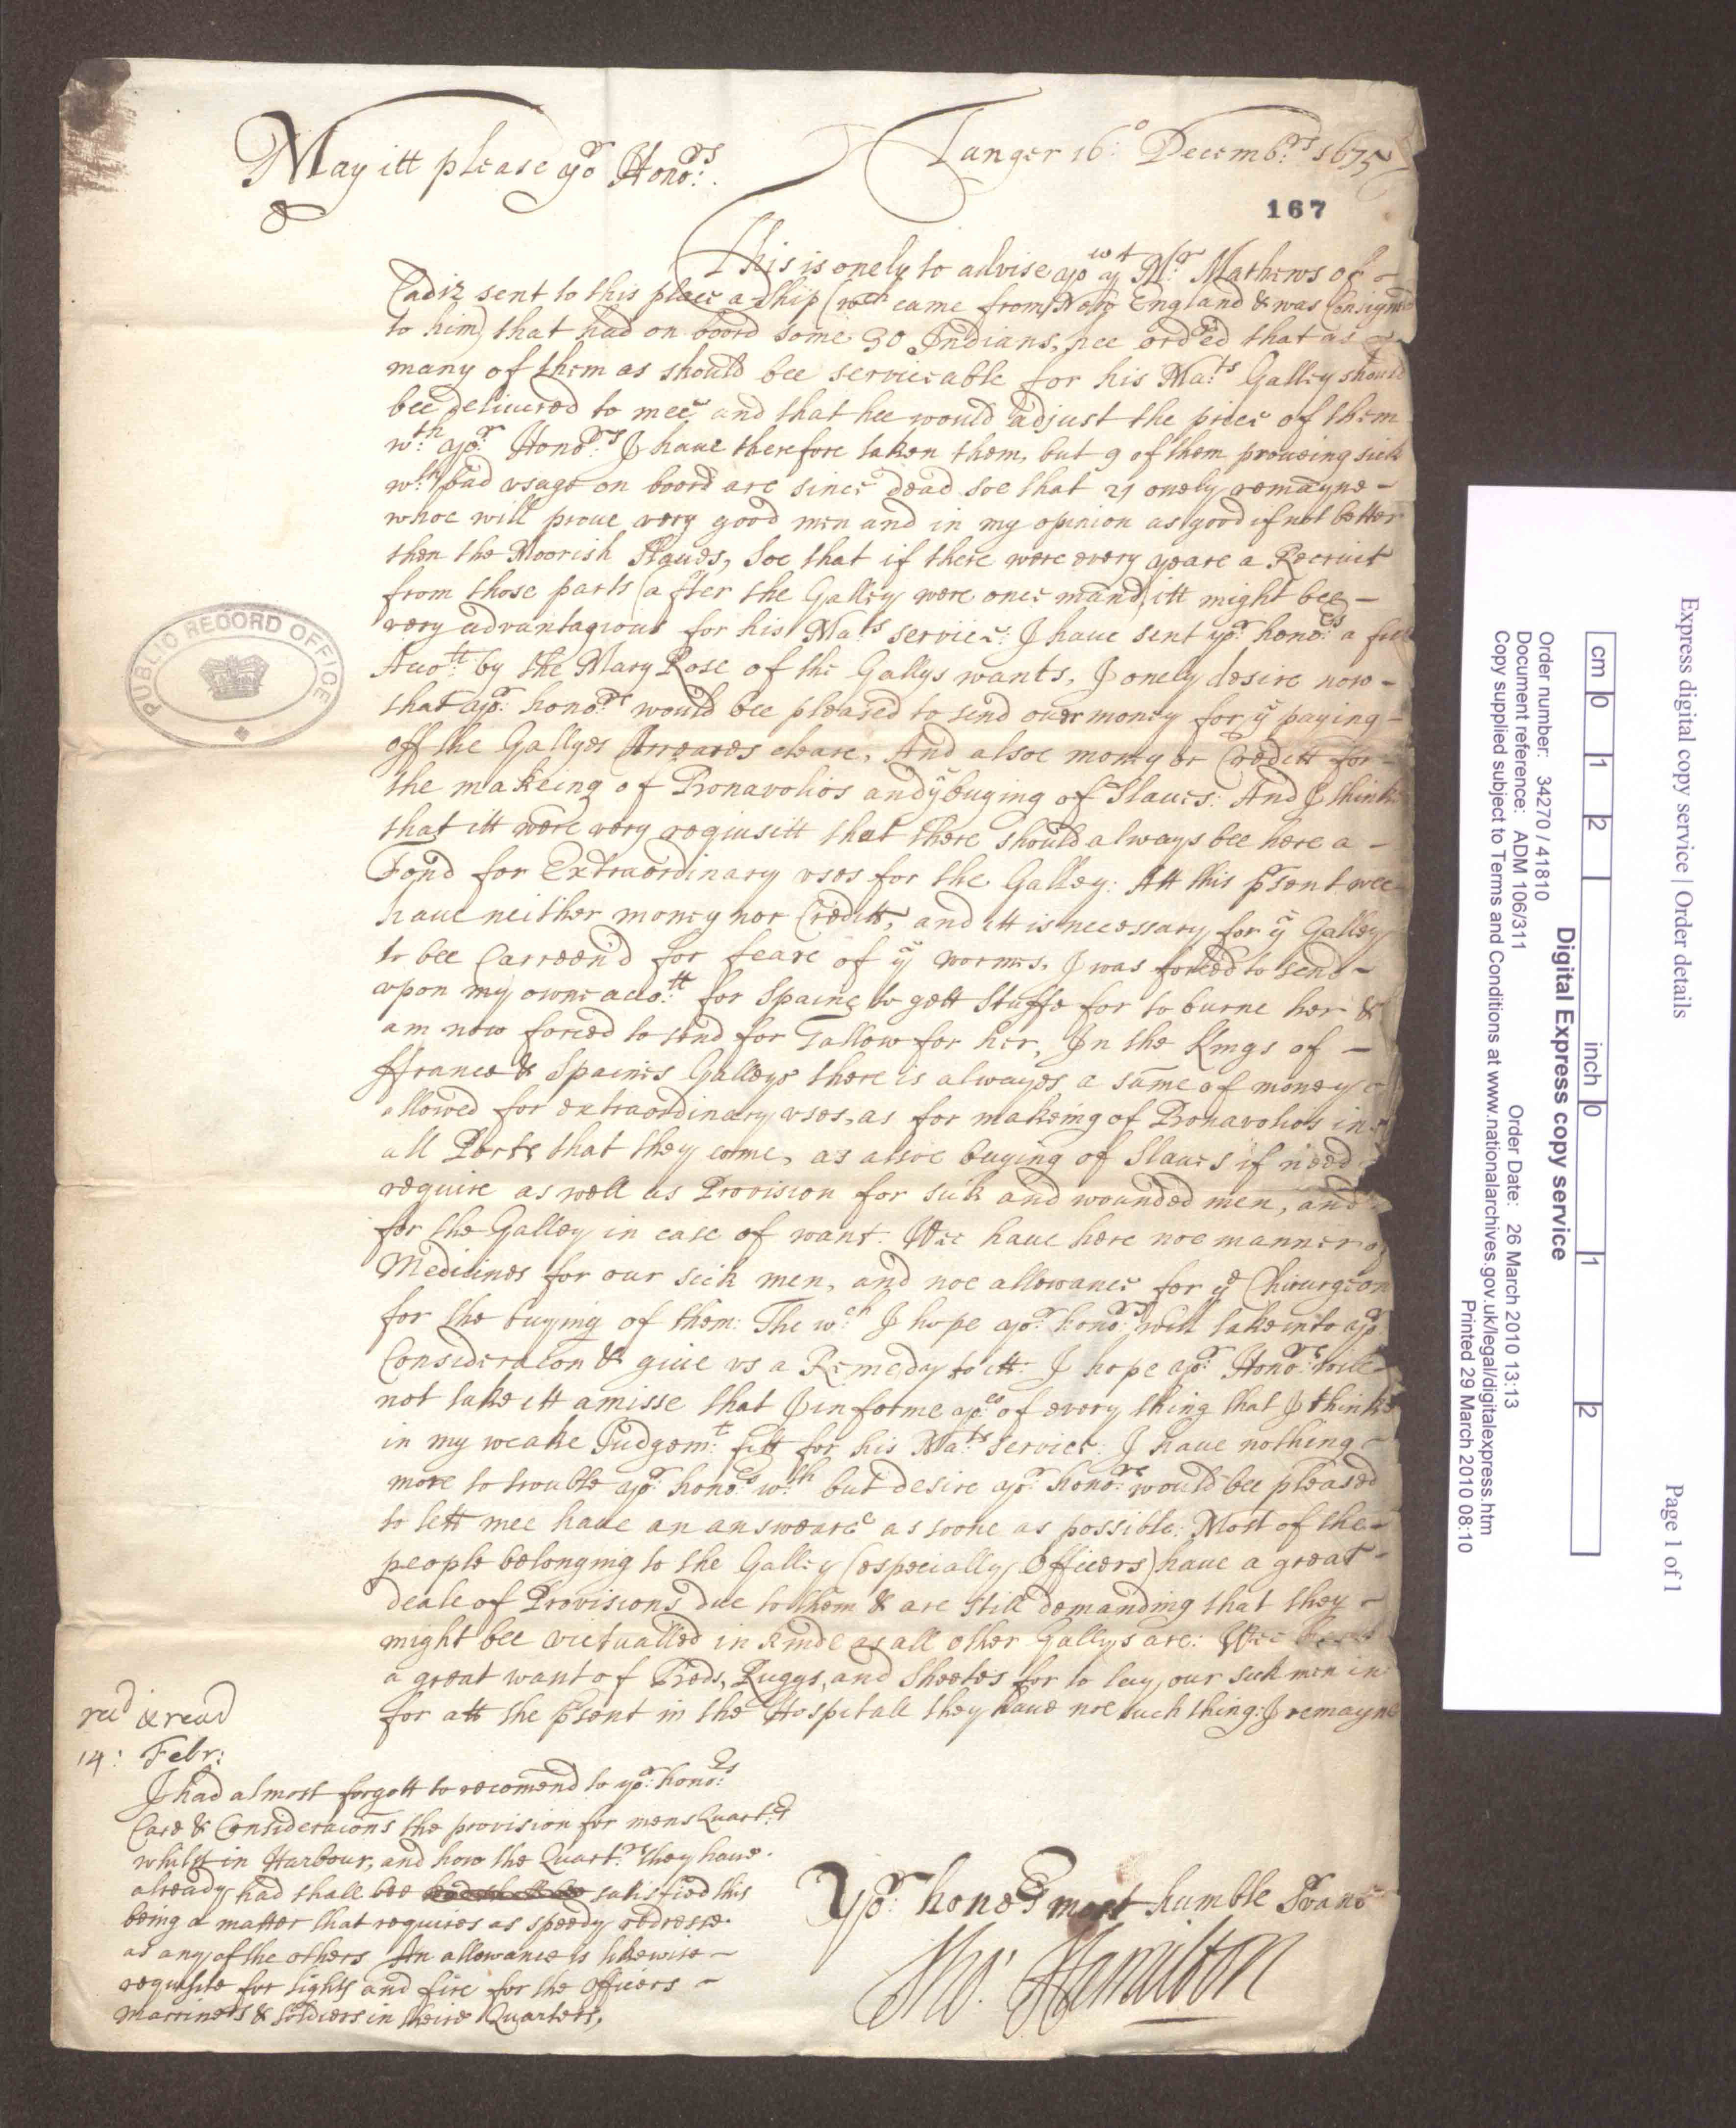 May itt please yor Honors.
Tanger 16o: Decembrs 1675
167
This is onely to advise yo yt Mr. Mathews of
Cadiz sent to this place a Ship (wch came from New England & was Consigned
to him) that had on board some 30 Indians, hee ord'ed that as
many of them as should bee serviceable for his Mats Galley should
bee delivered to mee and that hee would adjust the price of them
wth yor Honors I have therefore taken them, but 9 of them proveing sick
wth bad usage on board are since dead soe that 21 onely remayne
whoe will prove very good men and in my opinion as good if not better
then the Moorish Slaves, Soe that if there were every yeare a Recruit
from those parts (after the Galley were once mand) itt might bee
very advantagious for his Mats service: I have sent yor honors a full
Accott by the Mary Rose of the Gallys wants, I onely desire now
that yor honors would bee pleased to send over money for ye paying
off the Gallyes Arreares cleare, And alsoe money or Creditt for
the makeing of Bonavolios and ye buying of Slaves: And I thinke
that itt were very requisitt that there should always bee here a
Fond for Extraordinary uses for the Galley: Att this p'sent wee
have neither money nor Creditt, and itt is necessary for ye Galley
to bee Carreen'd for feare of ye wormes, I was forced to send
upon my owne accott for Spaine to gett Stuffe for to burne her &
am now forced to send for Tallow for her, In the Kings of
ffrance & Spaines Galleys there is alwayes a sume of money
allowed for extraordinary uses, as for makeing of Bonavolios in
all Ports that they come, as alsoe buying of Slaves if need
require as well as Provision for sick and wounded men, and
for the Galley in case of want. Wee have here noe manner of
Medicines for our sick men, and noe allowance for ye Chirurgeon
for the buying of them: The wch I hope yor honors will take into yor
Consideracon & give us a Remeday to itt: I hope yor Honors will
not take itt amisse that I informe yo of every thing that I thinke
in my weake Judgemt fitt for his Mats Service: I have nothing
more to trouble yor honors wth but desire yor honors would bee pleased
to lett mee have an answeare as soone as possible: Most of the
people belonging to the Galley (especially Officers) have a great
deale of Provisions due to them & are still demanding that they
might bee victualled in kinde as all other Gallys are: Wee
a great want of Beds, Ruggs, and Sheetes for to lay our sick men in
for att the p'sent in the Hospitall they have noe such thing: I remayne
recd & read
14: Febr:
I had almost forgott to recomend to yor honors
Care & Consideracons the provision for mens Quartrs
whilst in Harbour, and how the Quartrs they have
already had shall bee satisfied this
being a matter that requires as speedy redresse
as any of the others An allowance is likewise
requisite for lights and fire for the Officers
Marriners & Soldiers in theire Quarters,
Yor: honors most humble Servant
Tho: Hamilton
PUBLIC RECORD OFFICE
Express digital copy service | Order details
Page 1 of 1
cm 0 1 2 inch 0 1 2
Digital Express copy service
Order number: 34270 / 41810
Order Date: 26 March 2010 13:13
Document reference: ADM 106/311
Copy supplied subject to Terms and Conditions at www.nationalarchives.gov.uk/legal/digitalexpress.htm
Printed 29 March 2010 08:10